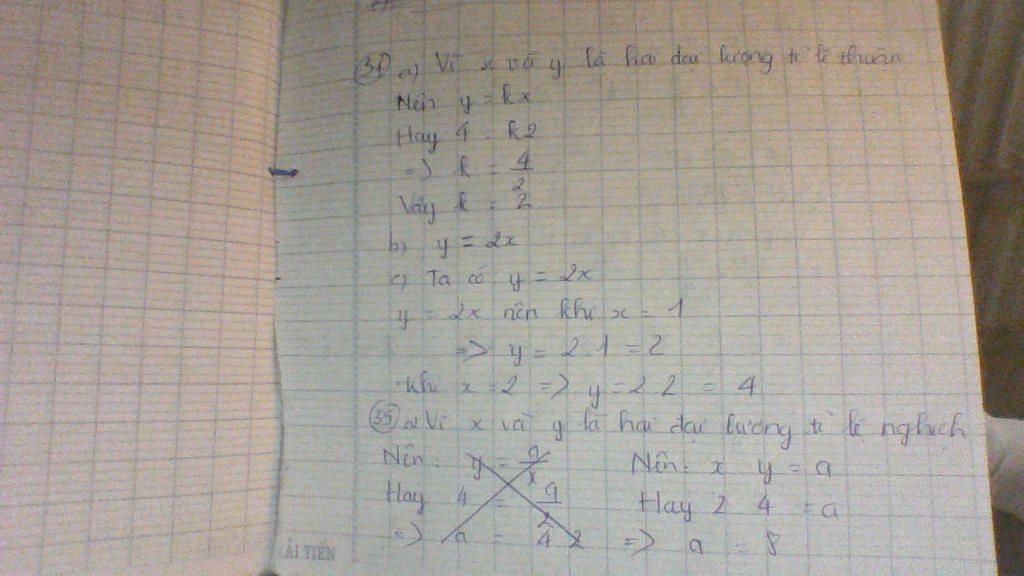 34 a) Vì x và y là hai đại lượng tỉ lệ thuận
Nên y = kx
Hay 4 = k2
=> k = 4/2
Vậy k = 2
b) y = 2x
c) Ta có y = 2x
y = 2x nên khi x = 1
=> y = 2.1 = 2
Khi x = 2 => y = 2 2 = 4
35 a) Vì x và y là hai đại lượng tỉ lệ nghịch
Nên: y = a/x Nên: x y = a
Hay 4 = a/2 Hay 2 4 = a
=> a = 4 2 => a = 8
ẢI TIẾN